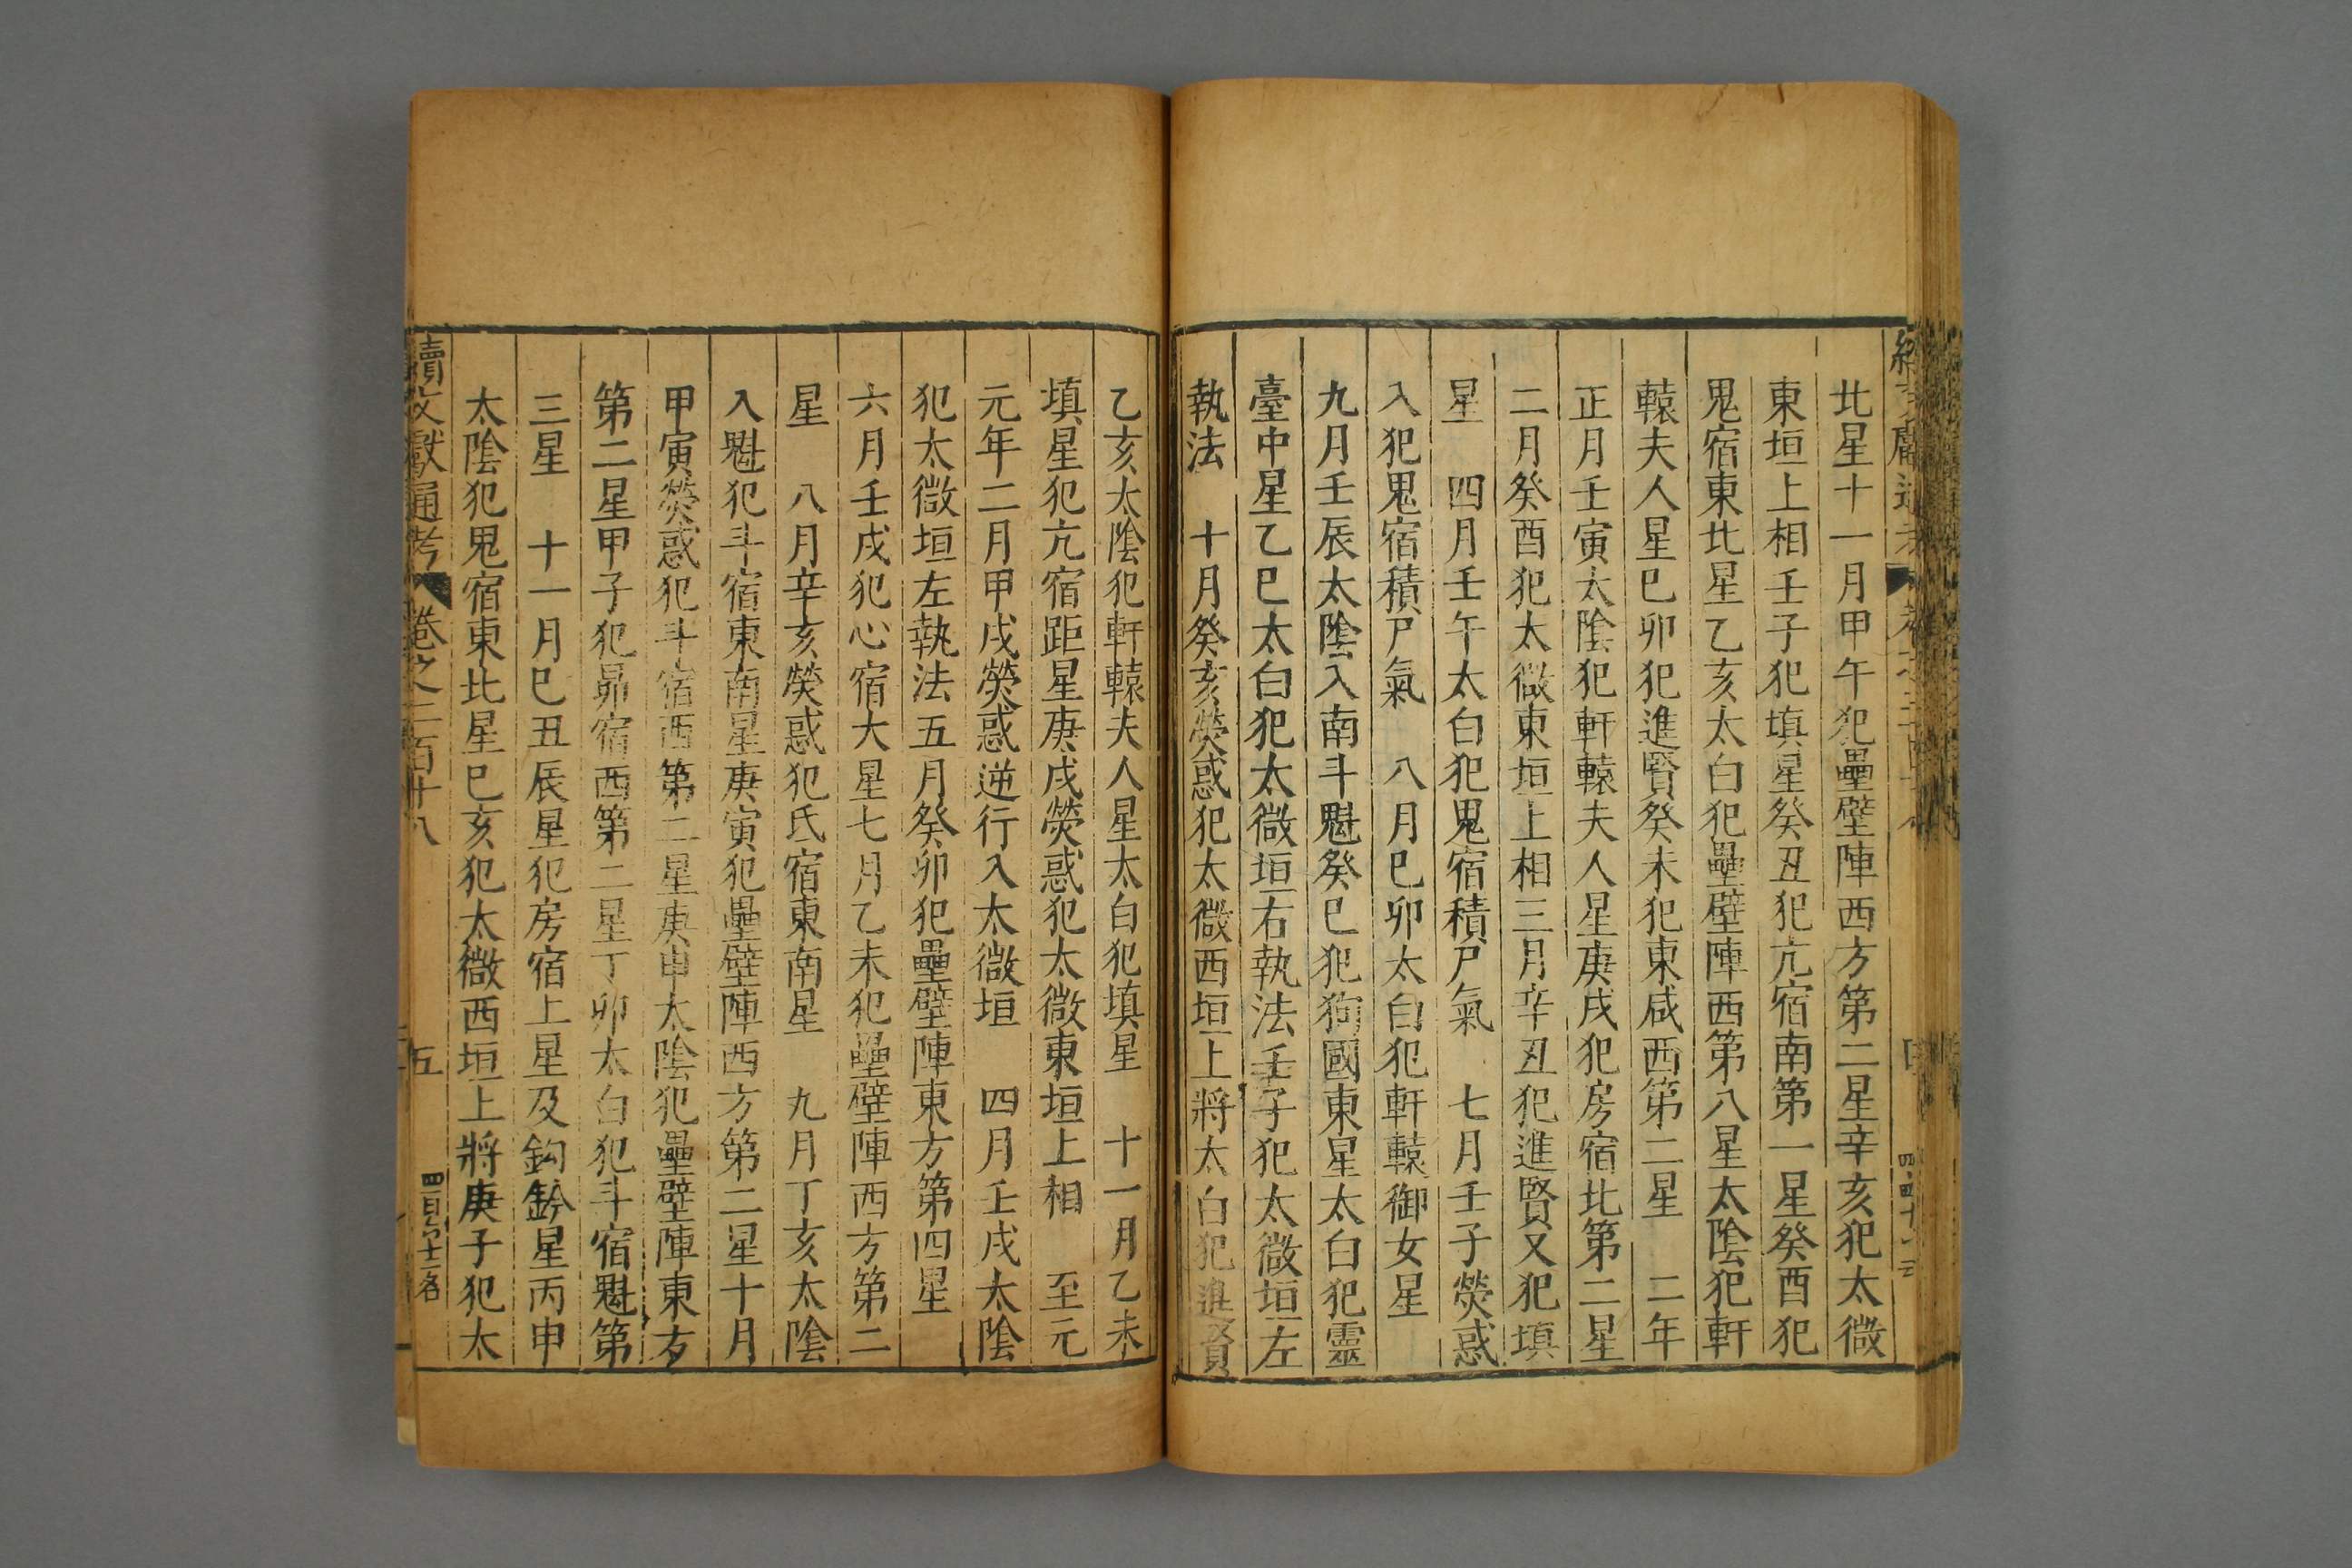 北星十一月甲午犯壘壁陣西方第二星辛亥犯太微
東垣上相壬子犯填星癸丑犯亢宿南第一星癸酉犯
鬼宿東北星乙亥太白犯壘壁陣西第八星太陰犯軒
轅夫人星巳卯犯進賢癸未犯東咸西第二星　二年
正月壬寅太陰犯軒轅夫人星庚戌犯房宿北第二星
二月癸酉犯太微東垣上相三月辛丑犯進賢又犯填
星　四月壬午太白犯鬼宿積尸氣　七月壬子熒惑
入犯鬼宿積尸氣　八月巳卯太白犯軒轅御女星
九月壬辰太陰入南斗魁癸巳犯狗國東星太白犯靈
臺中星乙巳太白犯太微垣右執法壬子犯太微垣左
執法　十月癸亥熒惑犯太微西垣上將太白犯進賢
乙亥太陰犯軒轅夫人星太白犯填星　十一月乙未
填星犯亢宿距星庚戌熒惑犯太微東垣上相　至元
元年二月甲戌熒惑逆行入太微垣　四月壬戌太陰
犯太微垣左執法五月癸卯犯壘壁陣東方第四星
六月壬戌犯心宿大星七月乙未犯壘壁陣西方第二
星　八月辛亥熒惑犯氐宿東南星　九月丁亥太陰
入魁犯斗宿東南星庚寅犯壘壁陣西方第二星十月
甲寅熒惑犯斗宿西第二星庚申太陰犯壘壁陣東方
第二星甲子犯昴宿西第二星丁卯太白犯斗宿魁第
三星　十一月巳丑辰星犯房宿上星及鈎鈐星丙申
太陰犯鬼宿東北星巳亥犯太微西垣上將庚子犯太
續文獻通考　卷之二百十八　五